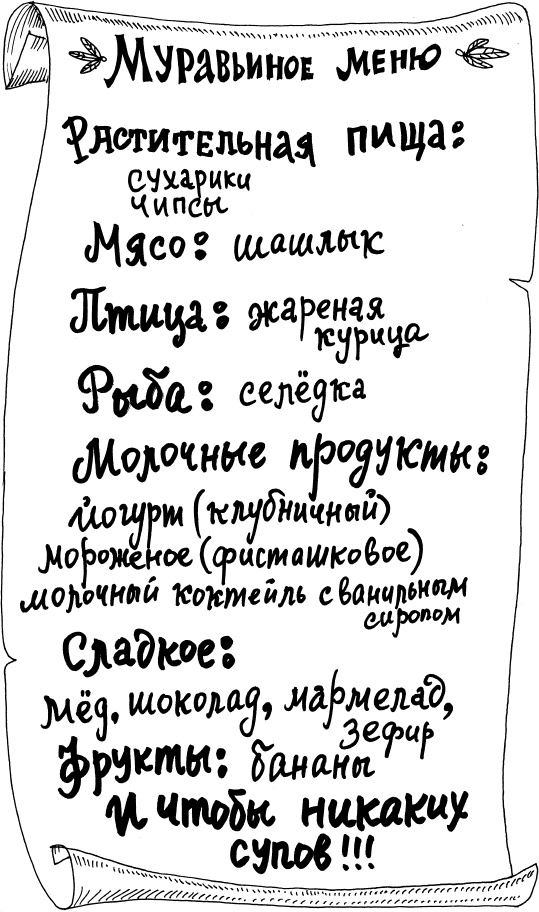 Муравьиное меню
Растительная пища:
сухарики
чипсы
Мясо: шашлык
Птица: жареная
курица
Рыба: селёдка
Молочные продукты:
йогурт (клубничный)
мороженое (фисташковое)
молочный коктейль с ванильным
сиропом
Сладкое:
мёд, шоколад, мармелад,
зефир
Фрукты: бананы
И чтобы никаких
супов!!!